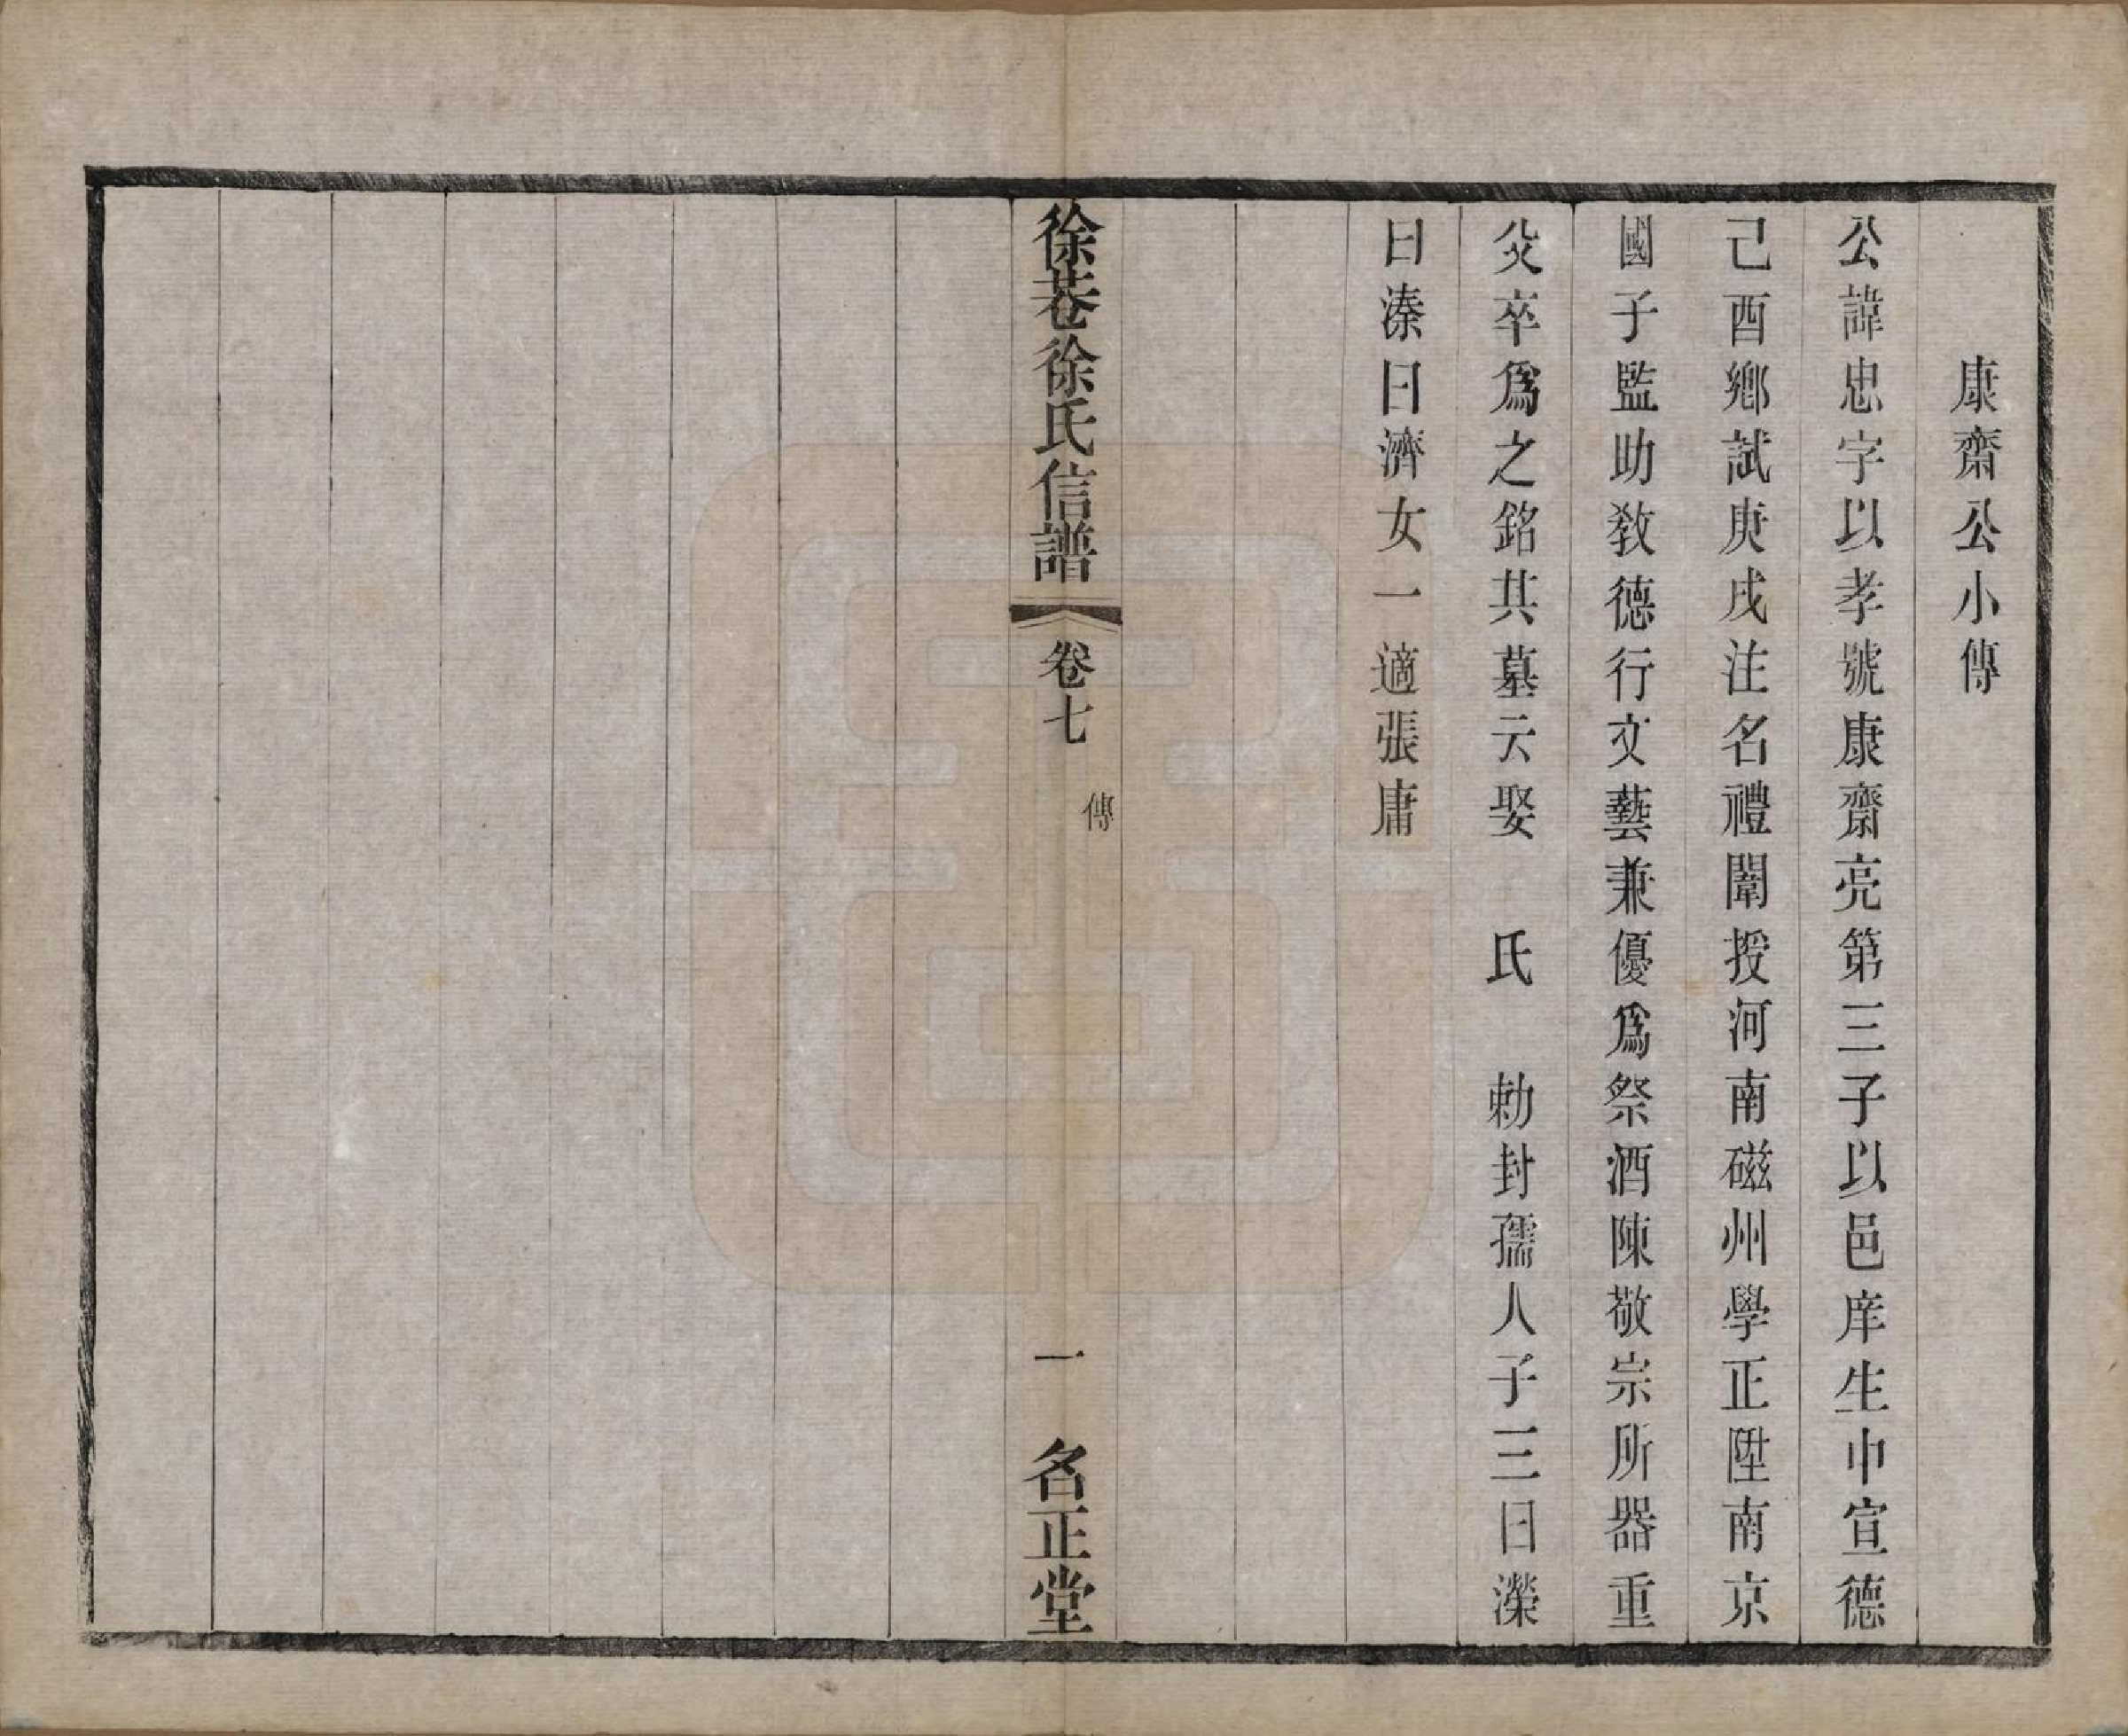 康齋公小傳
公諱忠字以孝號康齋亮第三子以邑庠生中宣德
己酉鄉試庚戌注名禮闈授河南磁州學正陞南京
國子監助教德行文藝兼優爲祭酒陳敬宗所器重
父卒爲之銘其墓云娶　氏　勅封孺人子三曰濚
曰溱曰濟女一適張庸
徐巷徐氏信譜　卷七　傳　一　名正堂